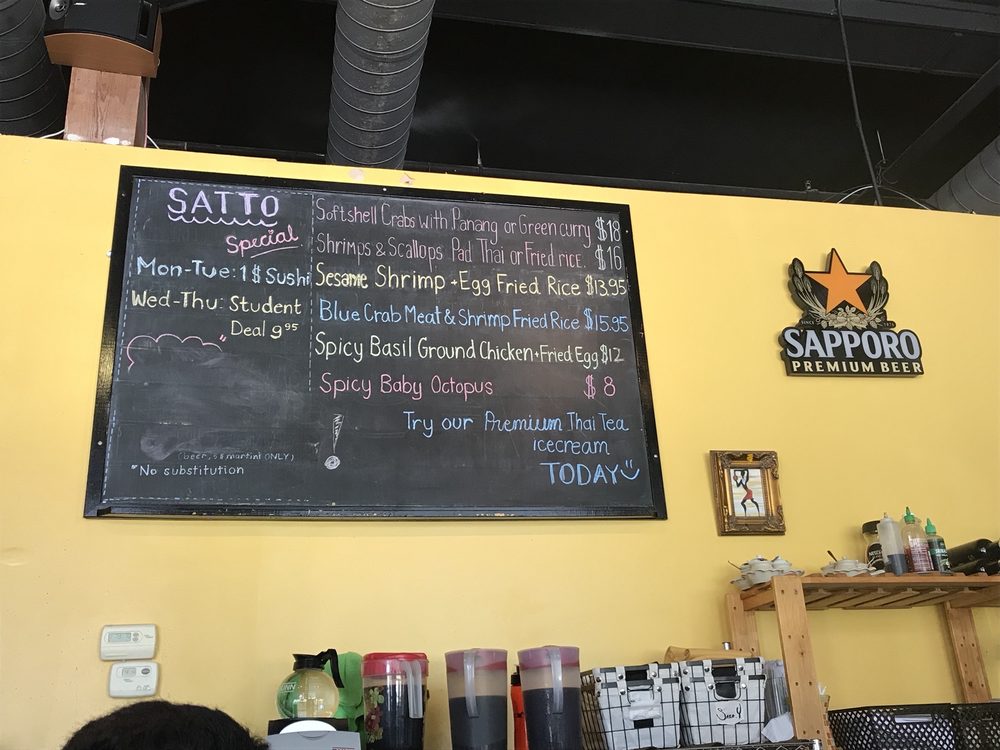 SATTO
Special
Mon-Tue: 1$ Sushi
Wed-Thu: Student
Deal 9⁹⁵
(beer, s martini ONLY)
"No substitution
Softshell Crabs with Panang or Green curry $18
Shrimps & Scallops Pad Thai or Fried rice. $16
Sesame Shrimp + Egg Fried Rice $13.95
Blue Crab Meat & Shrimp Fried Rice $15.95
Spicy Basil Ground Chicken + Fried Egg $12
Spicy Baby Octopus $8
Try our Premium Thai Tea
icecream
TODAY
SINCE 1876
SAPPORO
PREMIUM BEER